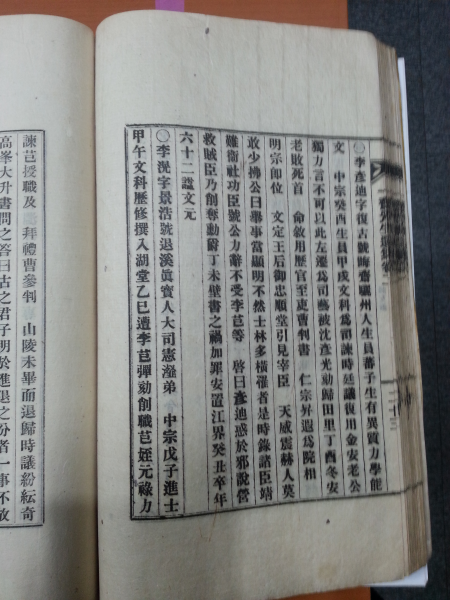 ○李彦迪字復古號晦齋驪州人生員蕃子生有異質力學能
文　中宗癸酉生員甲戌文科爲司諫時廷議復用金安老公
獨力言不可以此左遷爲司藝被沈彦光劾歸田里丁酉冬安
老敗死首　命敘用歷官至吏曹判書　仁宗昇遐爲院相
明宗卽位　文定王后御忠順堂引見宰臣　天威震赫人莫
敢少拂公曰擧事當顯明不然士林多橫罹者是時錄諸臣靖
難衛社功臣號公力辭不受李芑等　啓曰彦迪惑於邪說營
救賊臣乃削奪勳爵丁未壁書之禍加罪安置江界癸丑卒年
六十二諡文元
○李滉字景浩號退溪眞寶人大司憲瀣弟　中宗戊子進士
甲午文科歷修撰入湖堂乙巳遭李芑彈劾削職芑姪元祿力
諫芑授職及　拜禮曹參判　山陵未畢而退歸時議紛紜奇
高峯大升書問之答曰古之君子明於進退之分者一事不放
二十三